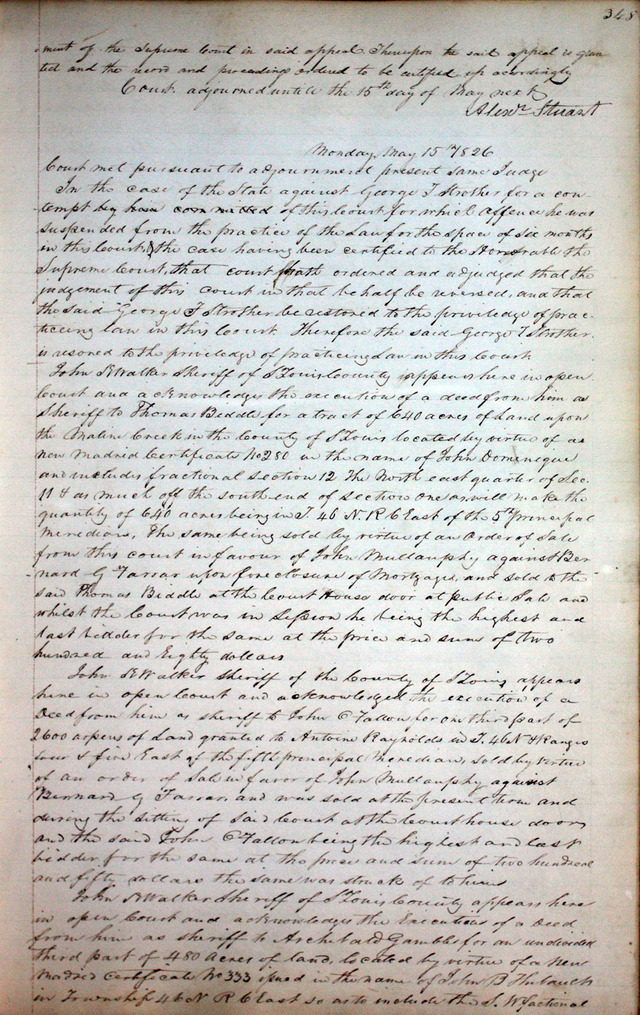 348
ment of the Supreme Court in said appeal Thereupon the said appeal is gran
ted and the record and proceedings ordered to be certified up accordingly
Court adjourned untill the 15th day of May next
Alexr Stuart
Monday May 15th 1826
Court met pursuant to adjournment present same Judge
In the case of the State against George T Strother for a con-
tempt by him committed of this Court for which offence he was
suspended from the practice of the Law for the space of six months
in this Court, the case having been certified to the Honorable the
Supreme Court, that court hath ordered and adjudged that the
judgement of this court in that behalf be reversed, and that
the said George T Strother be restored to the priviledge of prac-
ticeing law in this Court Therefore the said George T Strother
is resored to the priviledge of practicing law in this Court
John K Walker Sheriff of St Louis County appears here in open
Court and acknowledges the execution of a deed from him as
Sheriff to Thomas Biddle for a tract of 640 acres of Land upon
the Maline Creek in the County of St Louis located by virtue of a
new Madrid Certificate No 280 in the name of John Dominique
and includes fractional section 12 The North east quarter of Sec.
11 & as much off the south end of section one as will make the
quantity of 640 acres being in T. 46 N. R 6 East of the 5th Principal
Meridian, The same being sold by virtue of an Order of Sale
from this court in favour of John Mullanphy against Ber-
nard G Farrar upon foreclosure of Mortgage, and sold to the
said Thomas Biddle at the Court House door at public Sale and
whilst the Court was in Session he being the highest and
last bidder for the same at the price and sum of two
hundred and Eighty dollars
John K Walker sheriff of the County of St Louis appears
here in open Court and acknowledged the execution of a
Deed from him as sheriff to John O Fallon for one third part of
2600 arpens of Land granted to Antoine Raynolds in T. 46 N & Ranges
four & five East of the fifth principal Meredian, sold by virtue
of an order of Sale in favor of John Mullanphy against
Bernard G Farrar, and was sold at the present term and
during the sitting of said Court at the Court house door,
and the said John O Fallon being the highest and last
bidder for the same at the price and sum of two hundred
and fifty dollars the same was struck of to him
John K Walker Sheriff of St Louis County appears here
in open Court and acknowledges the Execution of a Deed
from him as sheriff to Archibald Gamble for an undivided
third part of 480 acres of land, located by virtue of a New
Madrid Certificate No 333 issued in the name of John B
in Township 46 N R 6 East so as to include the S. W factional